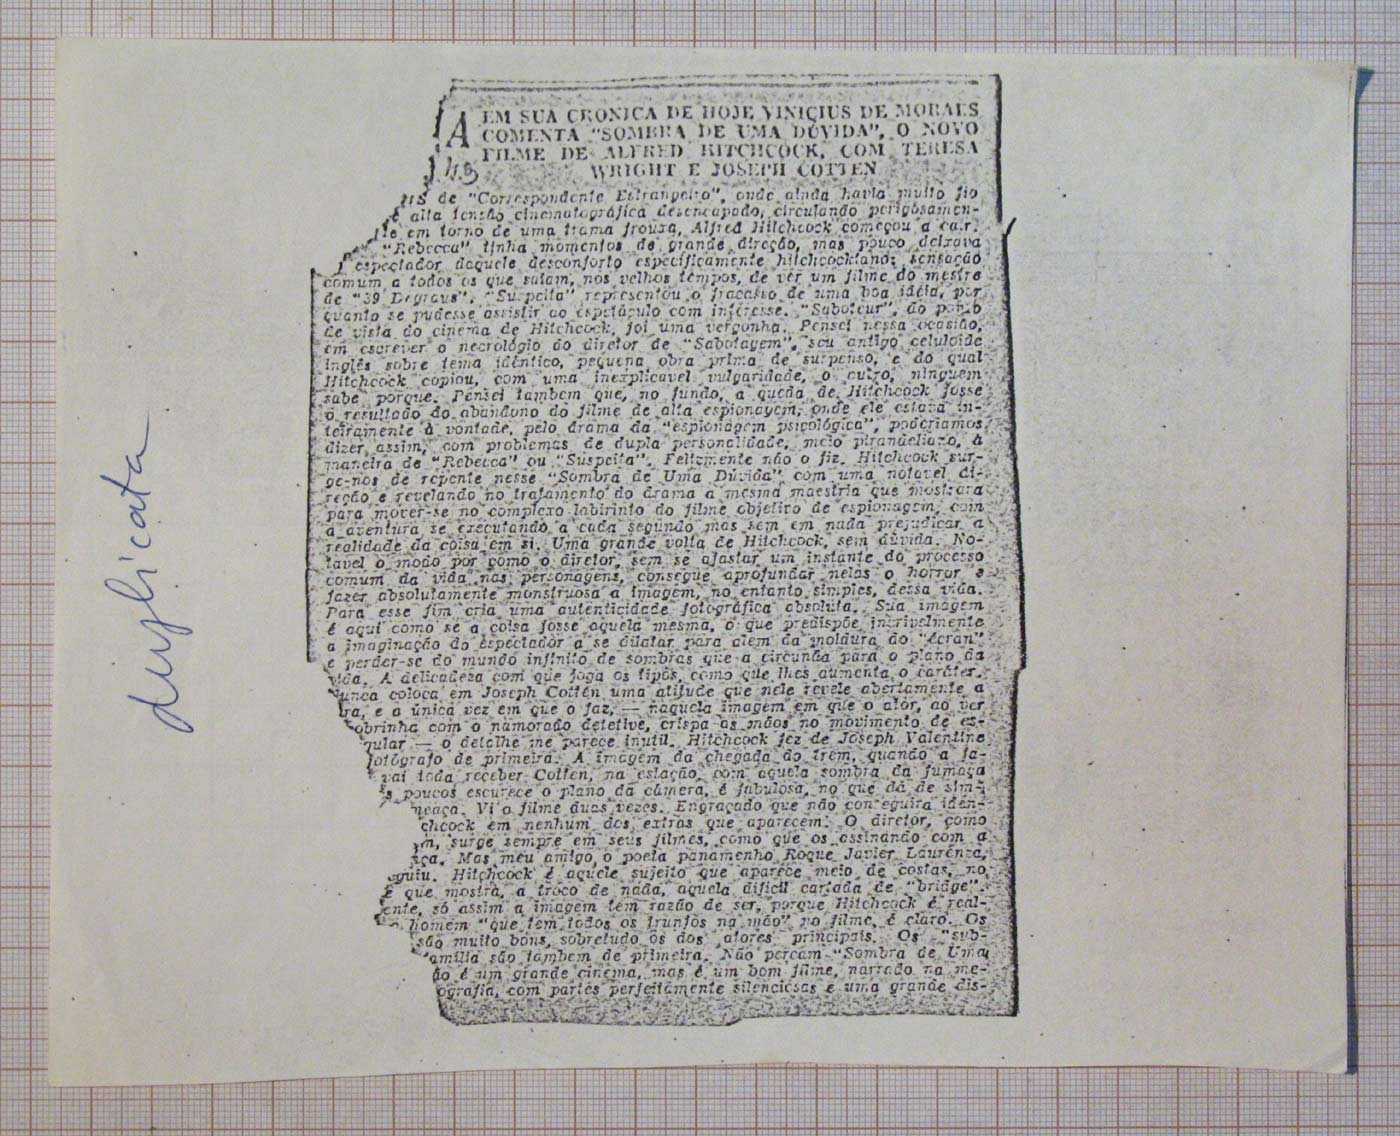 duplicata
A
.43
EM SUA CRONICA DE HOJE VINICIUS DE MORAES
COMENTA "SOMBRA DE UMA DÚVIDA", O NOVO
FILME DE ALFRED HITCHCOCK, COM TERESA
WRIGHT E JOSEPH COTTEN
IS de "Correspondente Estrangeiro", onde ainda havia muito fio
e alta tensão cinematográfica desencapado, circulando perigosamen-
te em torno de uma trama frouxa, Alfred Hitchcock começou a cair.
"Rebecca" tinha momentos de grande direção, mas pouco deixava
espectador daquele desconforto especificamente hitchcockiano; sensação
comum a todos os que saíam, nos velhos tempos, de ver um filme do mestre
de "39 Degraus". "Suspeita" representou o fracasso de uma boa idéia, por
quanto se pudesse assistir ao espetáculo com interesse. "Saboteur", do ponto
de vista do cinema de Hitchcock, foi uma vergonha. Pensei nessa ocasião,
em escrever o necrológio do diretor de "Sabotagem", seu antigo celuloide
inglês sobre tema idêntico, pequena obra prima de suspenso, e do qual
Hitchcock copiou, com uma inexplicavel vulgaridade, o outro, ninguem
sabe porque. Pensei tambem que, no fundo, a queda de Hitchcock fosse
o resultado do abandono do filme de alta espionagem, onde ele estava in-
teiramente à vontade, pelo drama da "espionagem psicológica", poderiamos
dizer assim, com problemas de dupla personalidade, meio pirandeliano, à
maneira de "Rebecca" ou "Suspeita". Felizmente não o fiz. Hitchcock sur-
ge-nos de repente nesse "Sombra de Uma Dúvida" com uma notavel di-
reção e revelando no tratamento do drama a mesma maestria que mostrara
para mover-se no complexo labirinto do filme objetivo de espionagem, com
a aventura se executando a cada segundo mas sem em nada prejudicar a
realidade da coisa em si. Uma grande volta de Hitchcock, sem dúvida. No-
tavel o modo por como o diretor, sem se afastar um instante do processo
comum da vida nas personagens, consegue aprofundar nelas o horror e
fazer absolutamente monstruosa a imagem, no entanto simples, dessa vida.
Para esse fim cria uma autenticidade fotográfica absoluta. Sua imagem
é aqui como se a coisa fosse aquela mesma, o que predispõe incrivelmente
a imaginação do espectador a se dilatar para alem da moldura do "écran"
e perder-se do mundo infinito de sombras que a circunda para o plano da
vida. A delicadeza com que joga os tipos, como que lhes aumenta o caráter.
Nunca coloca em Joseph Cotten uma atitude que nele revele abertamente a
ra, e a única vez em que o faz, — naquela imagem em que o ator, ao ver
obrinha com o namorado detetive, crispa as mãos no movimento de es-
gular — o detalhe me parece inutil. Hitchcock fez de Joseph Valentine
fotógrafo de primeira. A imagem da chegada do trem, quando a fa-
vai toda receber Cotten, na estação, com aquela sombra da fumaça
s poucos escurece o plano da câmera, é fabulosa, no que dá de sim-
meaça. Vi o filme duas vezes. Engraçado que não conseguira iden-
chcock em nenhum dos extras que aparecem. O diretor, como
m, surge sempre em seus filmes, como que os assinando com a
ça. Mas meu amigo, o poeta panamenho Roque Javier Laurenza,
guiu. Hitchcock é aquele sujeito que aparece meio de costas, no
e que mostra, a troco de nada, aquela dificil cartada de "bridge".
ente, só assim a imagem tem razão de ser, porque Hitchcock é real-
homem "que tem todos os trunfos na mão" no filme, é claro. Os
são muito bons, sobretudo os dos atores principais. Os "sub-
amília são tambem de primeira. Não percam "Sombra de Uma
ão é um grande cinema, mas é um bom filme, narrado na me-
ografia, com partes perfeitamente silenciosas e uma grande dis-